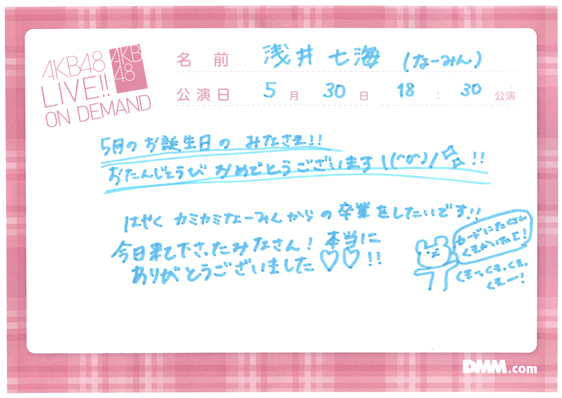 AKB48
LIVE!!
ON DEMAND
AKB
48
名前 浅井七海 (なーみん)
公演日 5月30日 18:30公演
5月のお誕生日の みなさま!!
おたんじょうび おめでとうございます \(^o^)/☆!!
はやく カミカミなーみんからの卒業をしたいです!!
今日来て下さったみなさん! 本当に
ありがとうございました♡♡!!
くまかいたよ!
DMM.com